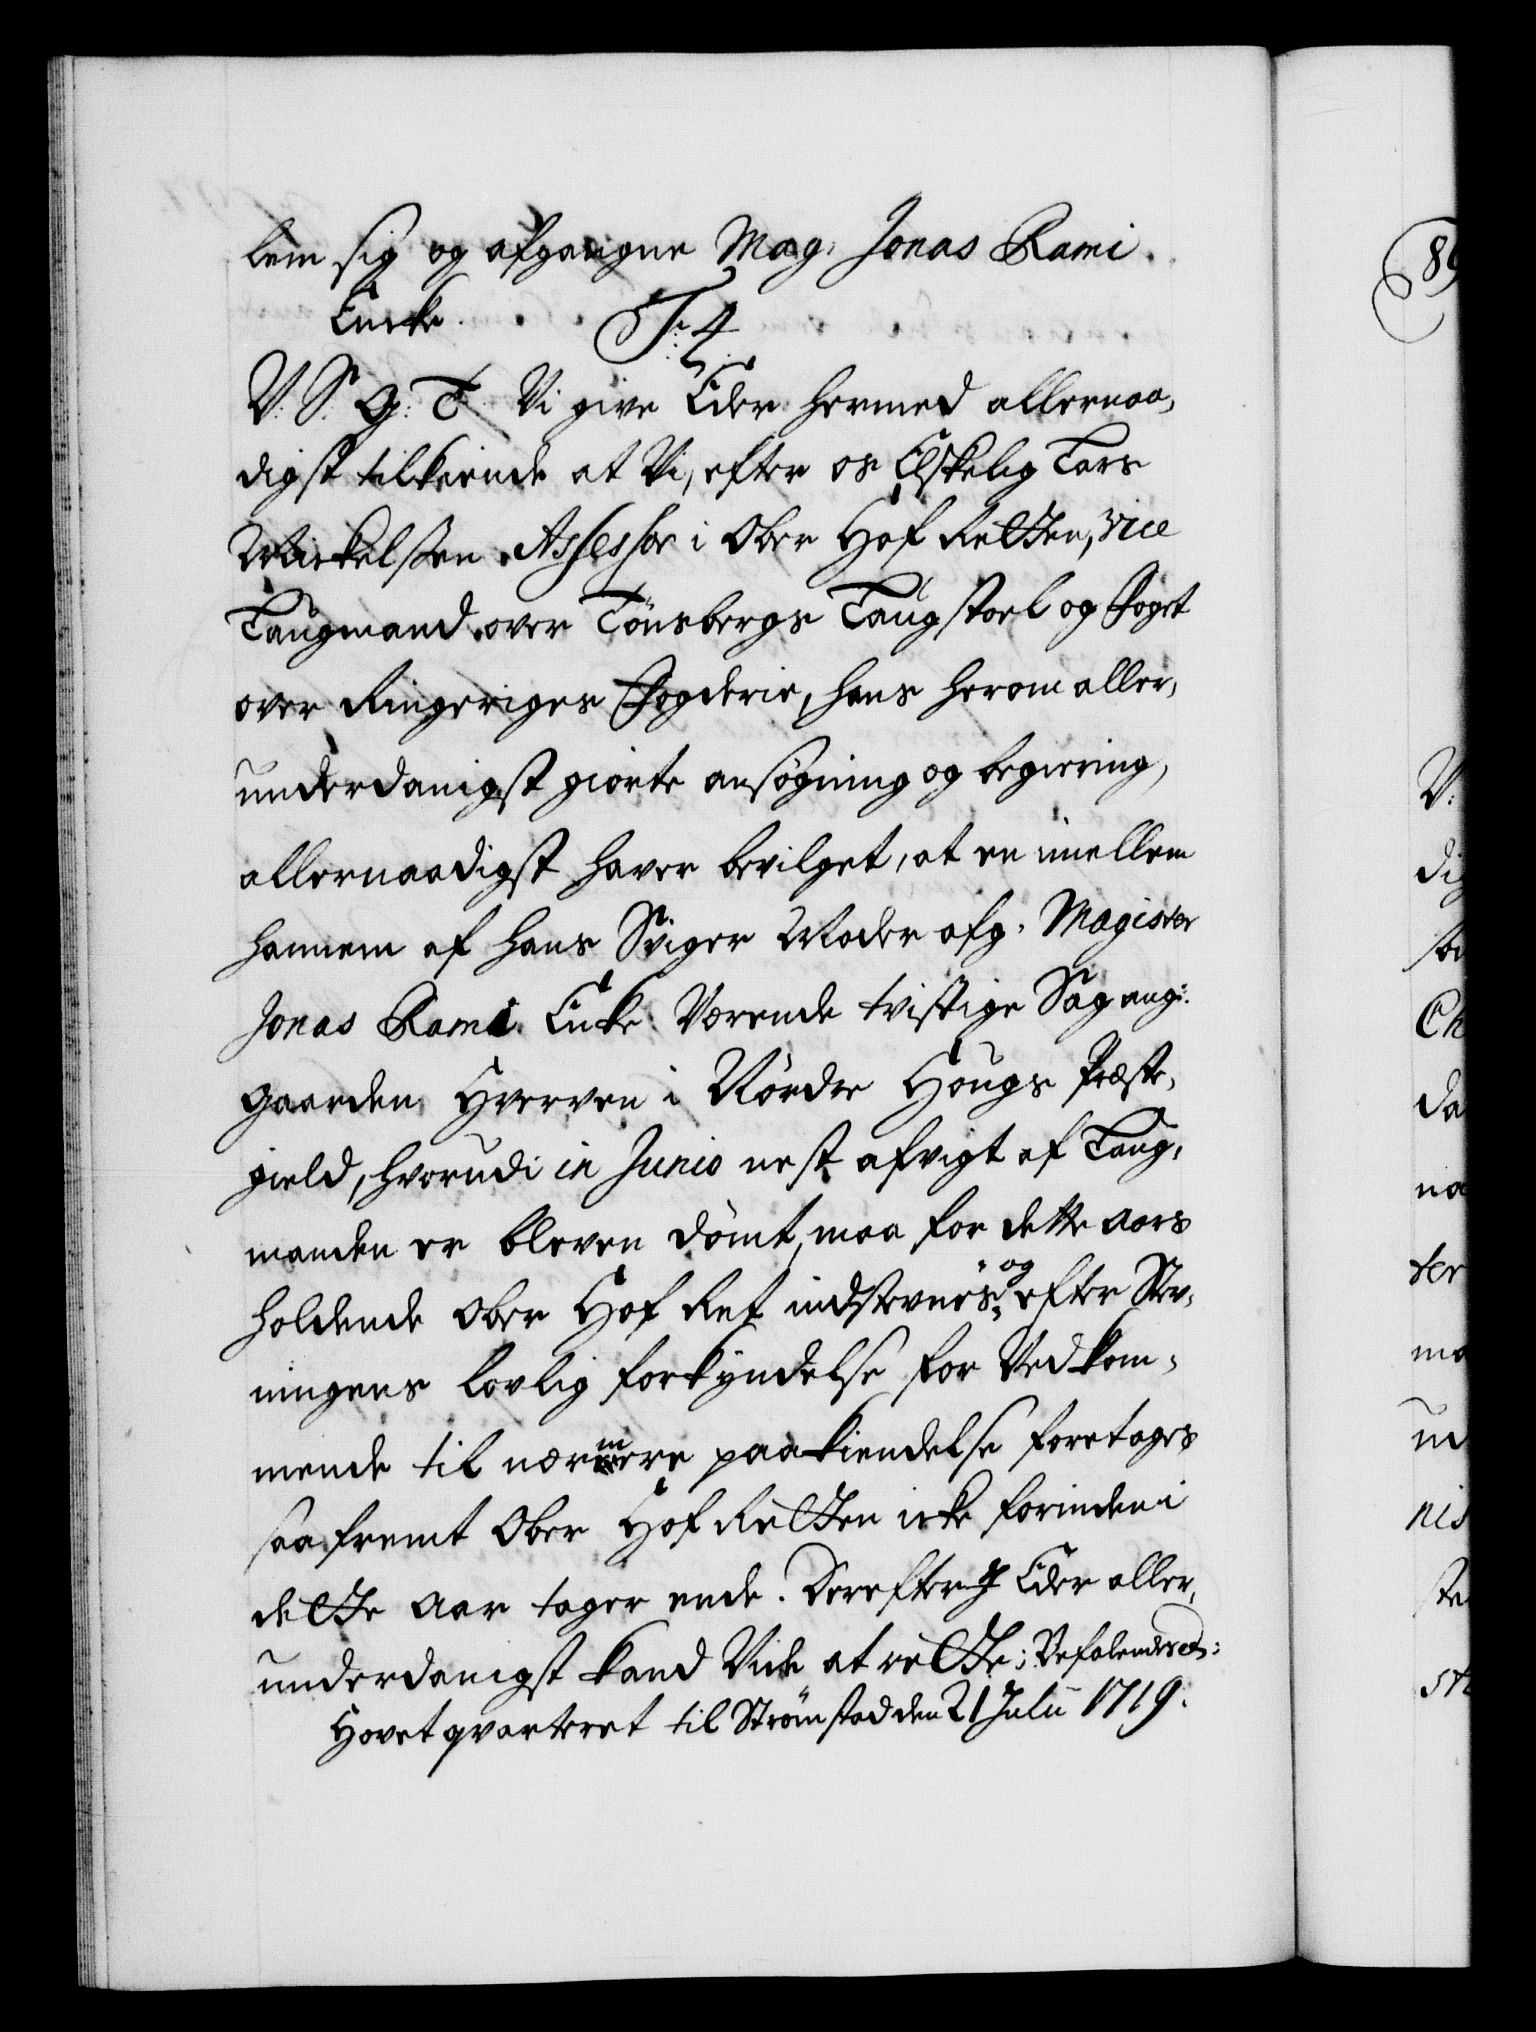 lem sig og afgangne Mag: Jonas Rami
Encke. F: 4
V: S: G: T: Vi give Eder hermed allernaa,
digst tilkiende at Vi, efter os Elskelig Lars
Michelsen Assessor i Ober Hof Retten, vice
Laugmand over Tönsbergs Laugstoel og Foget
over Ringeriges Fogderie, hans herom aller,
underdanigst giorte ansøgning og begiering,
allernaadigst haver bevilget, at en imellem
hannem af hans Sviger Moder afg: Magister
Jonas Rami Encke værende tvistige Sag ang:
gaarden Hverven i Nördre Hougs Præste,
gield, hvorudi in Junio nest afvigt af Laug,
manden er bleven dömt, maa for dette aars
holdende Ober Hof Ret indstevnes, og efter Stev,
ningens lovlig forkyndelse for Vedkom,
mende til nærmere paakiendelse foretages
saafremt Ober Hof Retten icke forinden i
dette Aar tager ende. Derefter I Eder aller,
underdanigst kand Vide at rette; Befalendes etc:
Hovetqvarteret til Strömstad den 21 Julii 1719.
89
V:
dig
Ch
da
na
ter
ma
un
nis
ste